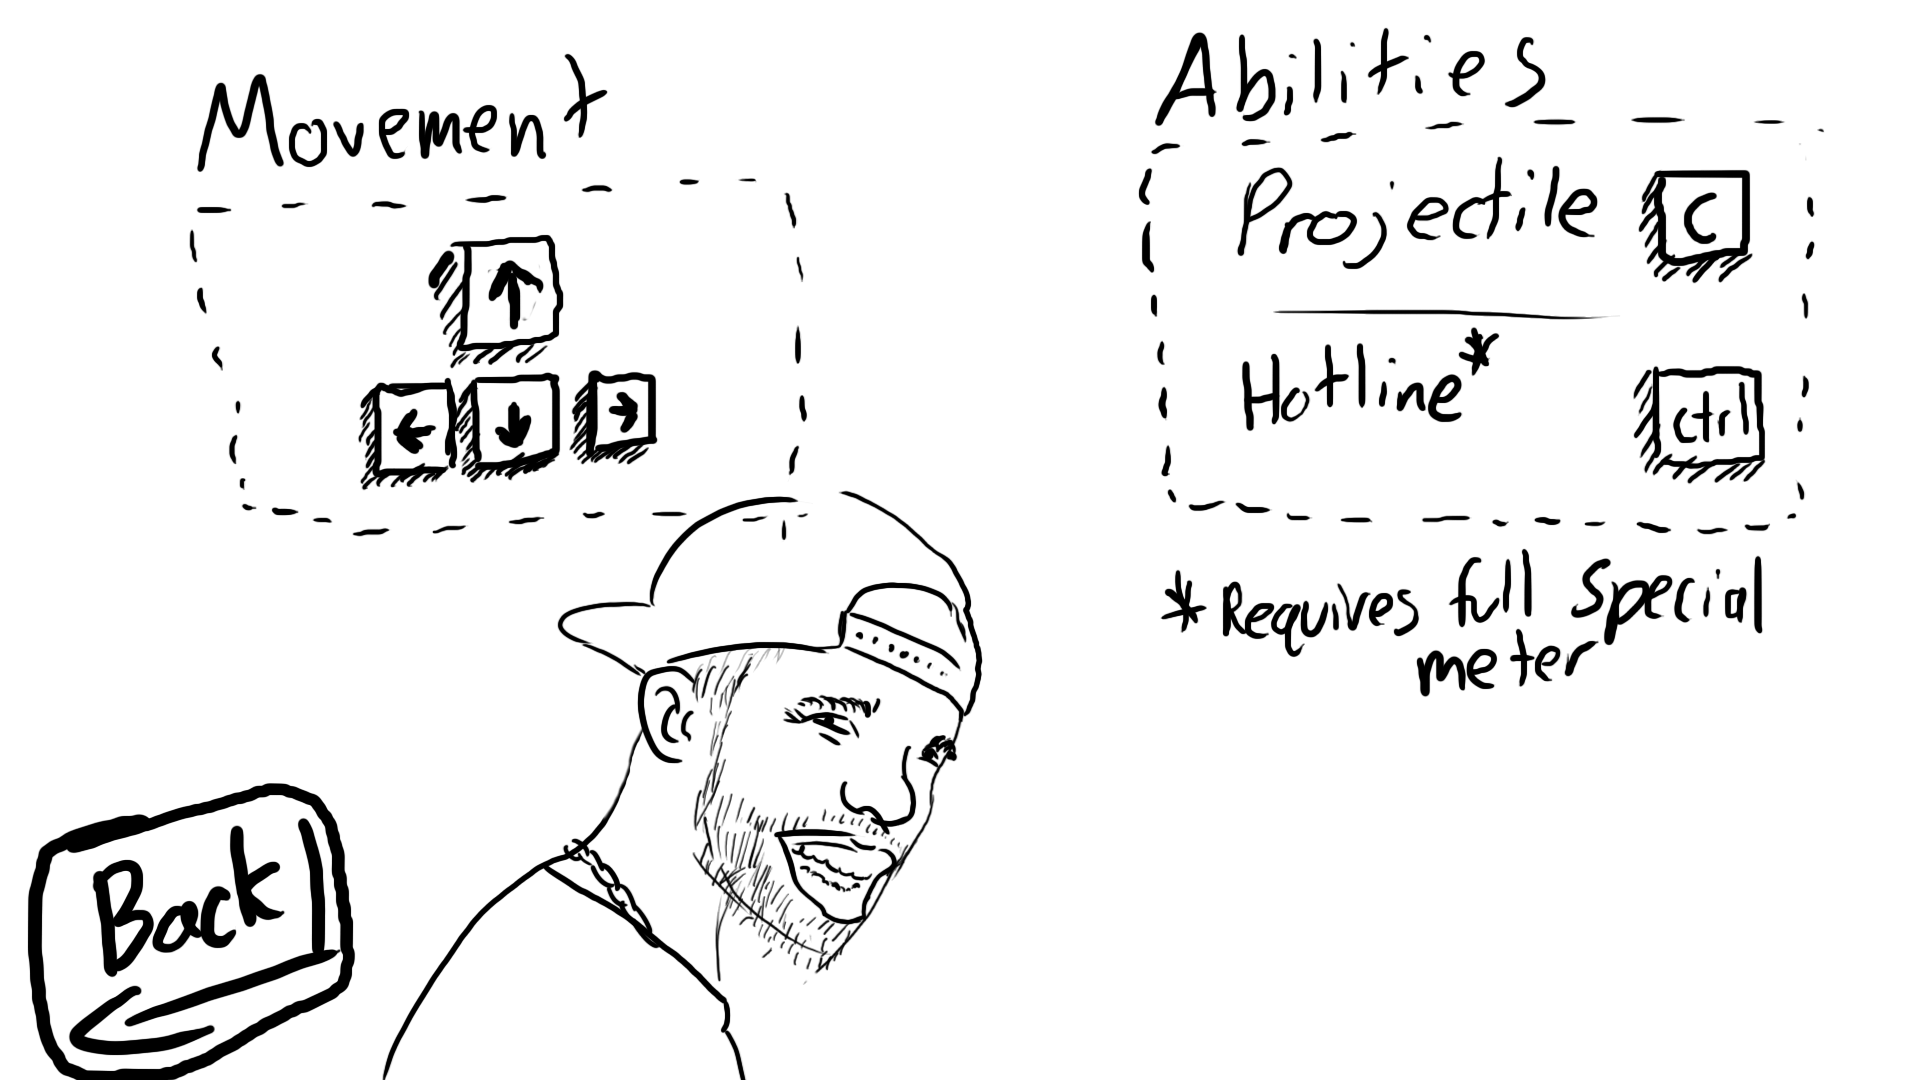 Movement
Abilities
Projectile C
Hotline* ctrl
*Requires full special
meter
Back